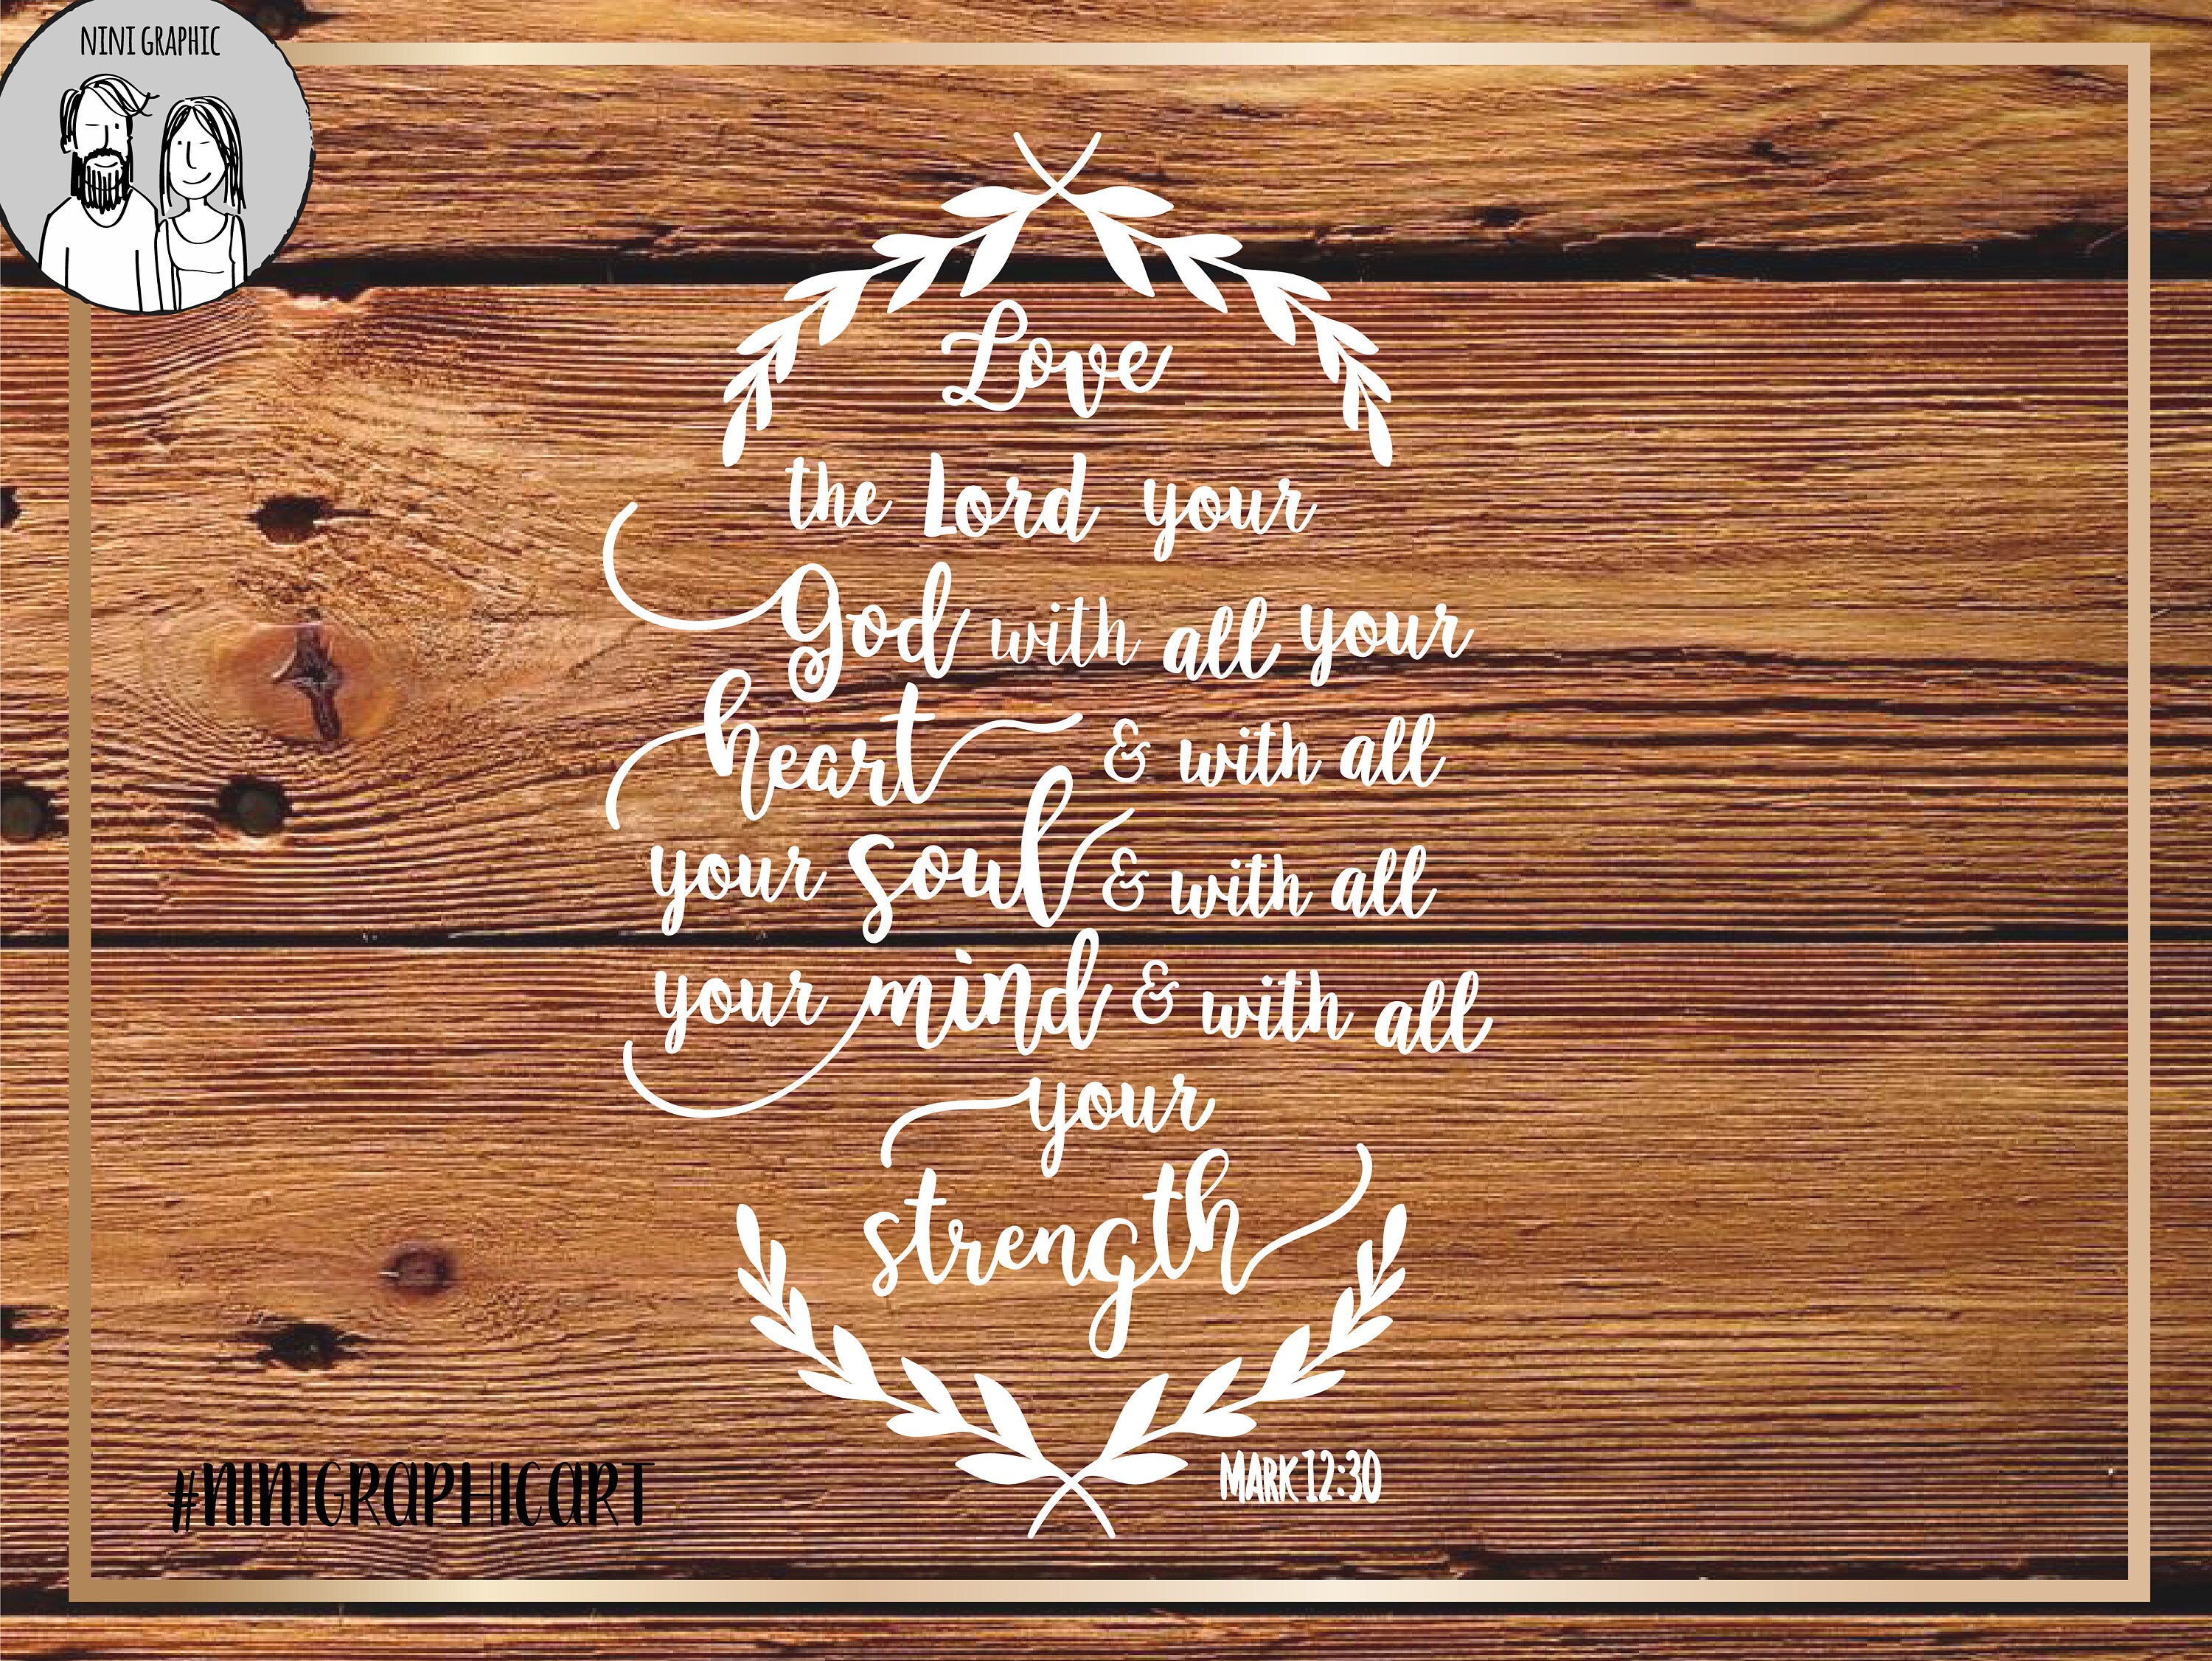 NINI GRAPHIC
Love
the Lord your
God with all your
heart & with all
your soul & with all
your mind & with all
your
strength
MARK 12:30
#NINIGRAPHICART